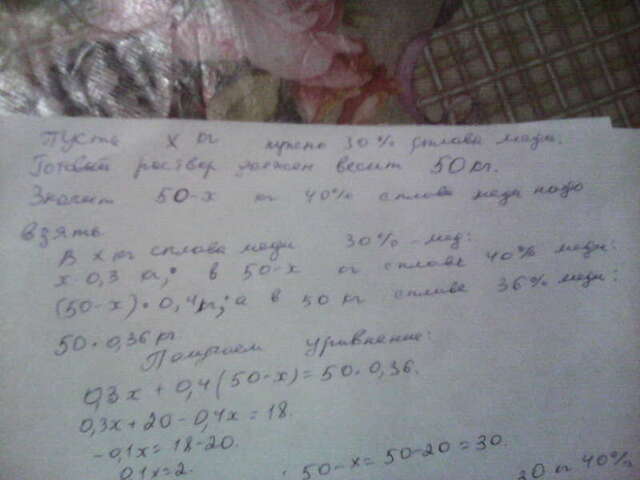 Пусть х кг нужно 30% сплава меди.
Готовый раствор должен весит 50 кг.
Значит 50-х кг 40% сплава меди надо
взять
В х кг сплава меди 30% - мед:
х·0,3 кг; в 50-х кг сплаве 40% меди:
(50-х)·0,4кг; а в 50 кг сплаве 36% меди:
50·0,36 кг
Получаем уравнение:
0,3х + 0,4(50-х) = 50·0,36.
0,3х + 20 - 0,4х = 18.
-0,1х = 18-20.
0,1х = 2. 50-х = 50-20 = 30.
кг 40%